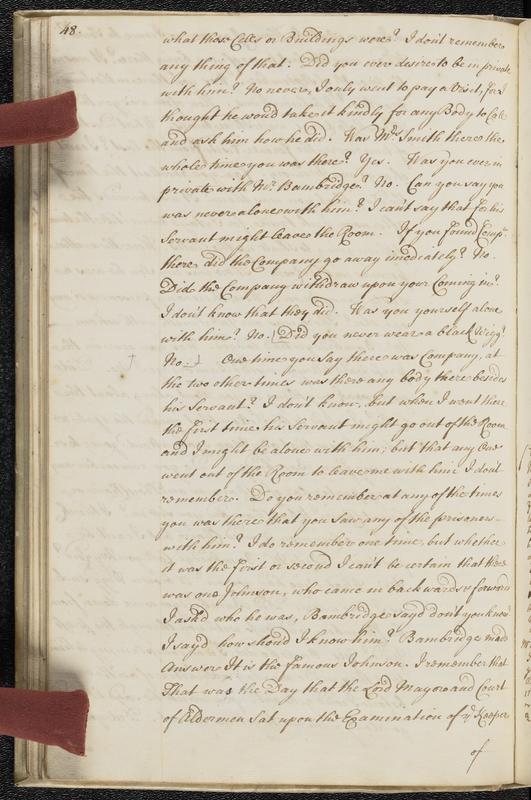 48.
what those Cells or Buildings were? I don't remember
any thing of that. Did you ever desire to be in private
with him? No never, I only went to pay a Visit, for I
thought he woud take it kindly for any Body to Call
and ask him how he did. Was Mrs Smith there the
whole time you was there? Yes. Was you ever in
private with Mr. Bambridge? No. Can you say you
was never alone with him? I can't say that for his
Servant might leave the Room. If you found Compy.
there did the Company go away imediately? No.
Did the Company withdraw upon your Coming in?
I don't know that they did. Was you yourself alone
with him? No. [Did you never wear a black Wigg?
† No.] One time you say there was Company, at
the two other times was there any body there besides
his Servant? I don't know, but when I went there
the first time his Servant might go out of the Room
and I might be alone with him; but that any One
went out of the Room to leave me with him I don't
remember. Do you remember at any of the times
you was there that you saw any of the prisoners
with him? I do remember one time, but whether
it was the first or second I can't be certain that there
was one Johnson, who came in backwards & forwards
I ask'd who he was, Bambridge sayd don't you know?
I sayd how shoud I know him? Bambridge made
Answer It is the famous Johnson. I remember that
That was the Day that the Lord Mayor and Court
of Aldermen Sat upon the Examination of ye Keeper
of